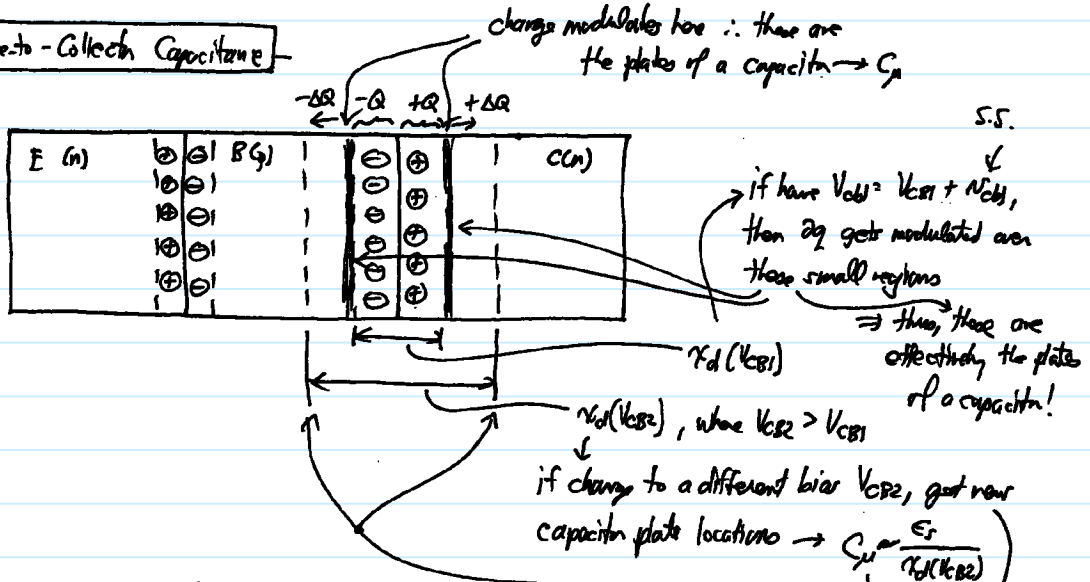 e-to-Collector Capacitance
charge modulates here ∴ these are
the plates of a capacitor → Cμ
-ΔQ -Q +Q +ΔQ
S.S.
E (n) ⊕ ⊖ B(p) ⊖ ⊕ C(n)
⊕ ⊖ ⊖ ⊕
⊕ ⊖ ⊖ ⊕
⊕ ⊖ ⊖ ⊕
⊕ ⊖ ⊖ ⊕
⊖
if have Vcb1 = VCB1 + vcb1,
then ∂q gets modulated over
these small regions
⇒ thus, these are
effectively the plates
of a capacitor!
xd(VCB1)
xd(VCB2), where VCB2 > VCB1
if change to a different bias VCB2, get new
capacitor plate locations → Cμ ~ εs / xd(VCB2)